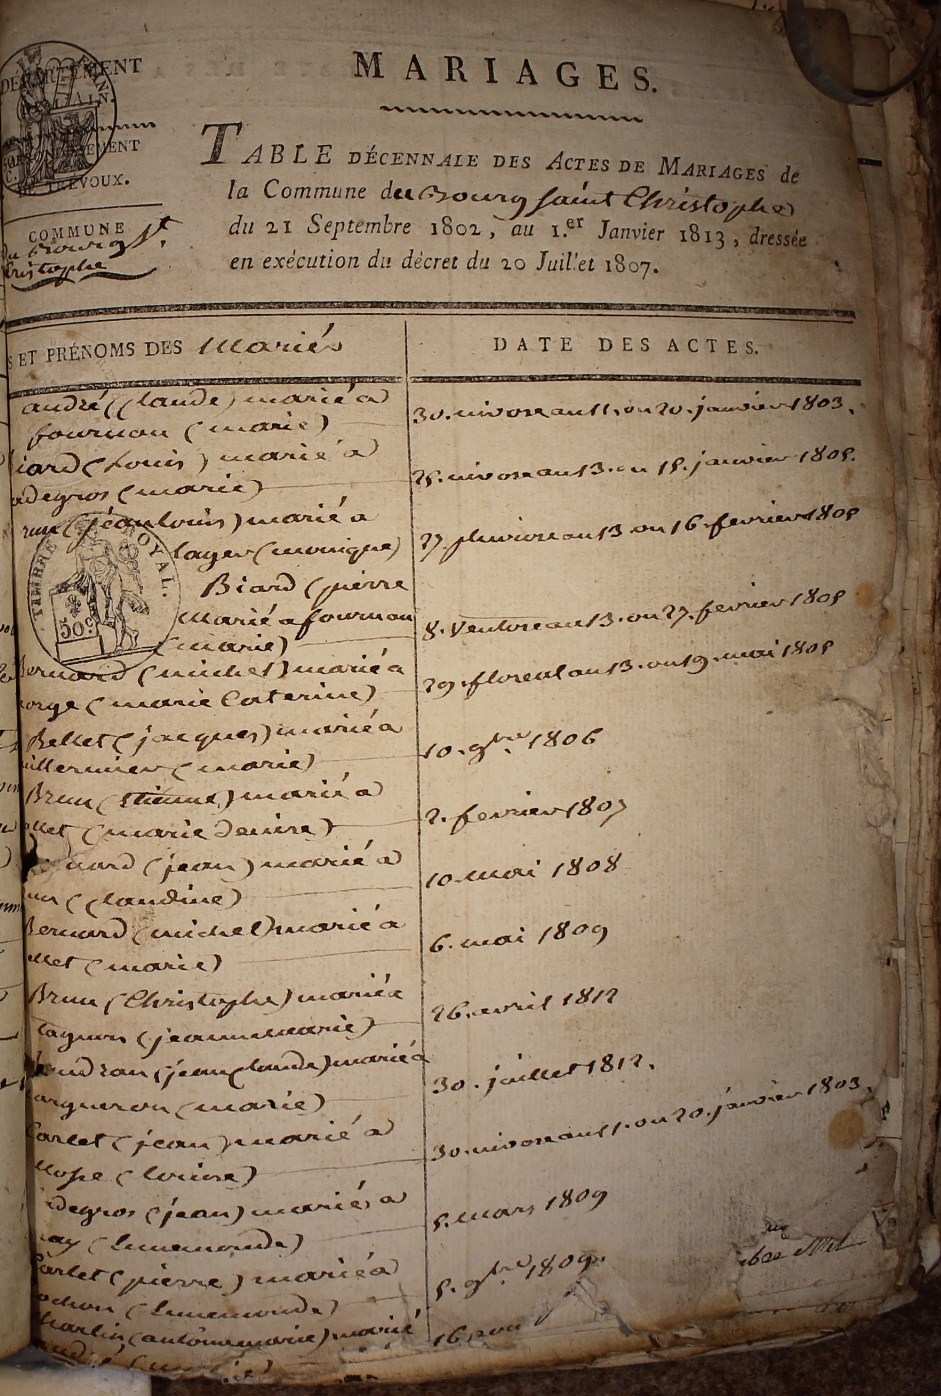 DÉPARTEMENT
DE L'AIN.
ARRONDISSEMENT
DE TRÉVOUX.
COMMUNE
du Bourg St.
Christophe
MARIAGES.
TABLE DÉCENNALE DES ACTES DE MARIAGES de
la Commune du Bourg Saint Christophe
du 21 Septembre 1802, au 1.er Janvier 1813, dressée
en exécution du décret du 20 Juillet 1807.
S ET PRÉNOMS DES Mariés
DATE DES ACTES.
andré (Claude) marié a
fournan (marie)
30. nivose an 11. ou 20. janvier 1803.
iard (Louis) marié a
adegros (marie)
25. nivose an 13. ou 15. janvier 1805.
run (jean louis) marié a
layer (monique)
27. pluviose an 13 ou 16. fevrier 1805
TIMBRE ROYAL.
50c
Biard (pierre
marié a fournan
(marie)
8. Ventose an 13. ou 27. fevrier 1805
Bernard (michel) marié a
orge (marie Caterine)
29. floreal an 13. ou 19. mai 1805
Bellet (jacques) marié a
uillermier (marie)
10. 9bre 1806
Brun (Etienne) marié a
llet (marie Denise)
2. fevrier 1807
nard (jean) marié a
(Claudine)
10. mai 1808
Bernard (michel) marié a
llet (marie)
6. mai 1809
Brun (Christophe) marié a
(jeanne marie)
26. avril 1812
(jean Claude) marié a
argueron (marie)
30. juillet 1812.
Carlet (jean) marié a
(Louise)
30. nivose an 11. ou 20. janvier 1803.
adegros (jean) mariés a
ay (Lunemonde)
5. mars 1809
Carlet (pierre) marié a
ochon (Lunemonde)
5. 9bre 1809.
Charlin (antoine marie) marié
16